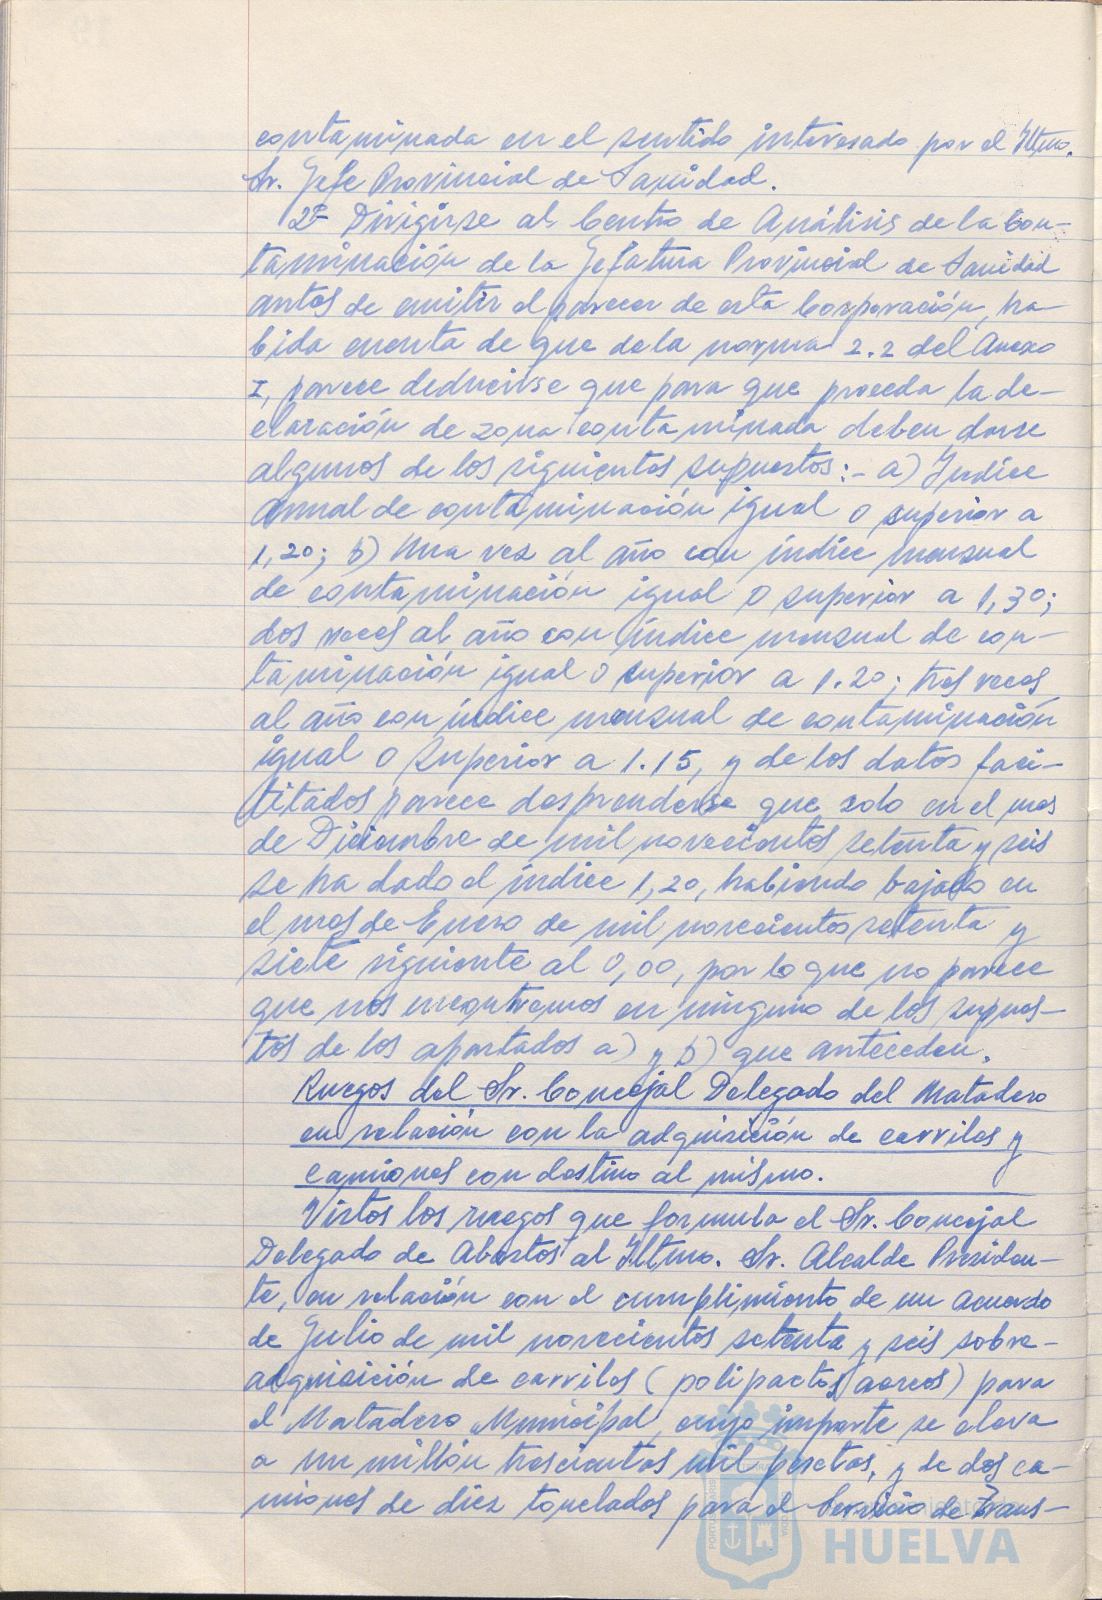 contaminada en el sentido interesado por el Iltmo.
Sr. Jefe Provincial de Sanidad.
2º Dirigirse al Centro de Análisis de la Con-
taminación de la Jefatura Provincial de Sanidad
antes de emitir el parecer de esta Corporación, ha-
bida cuenta de que de la norma 2.2 del Anexo
I, parece deducirse que para que proceda la de-
claración de zona contaminada deben darse
algunos de los siguientes supuestos:- a) Indice
Annal de contaminación igual o superior a
1,20; b) Una vez al año con índice mensual
de contaminación igual o superior a 1,30;
dos veces al año con índice mensual de con-
taminación igual o superior a 1.20; tres veces
al año con índice mensual de contaminación
igual o superior a 1.15, y de los datos faci-
litados parece desprenderse que solo en el mes
de Diciembre de mil novecientos setenta y seis
se ha dado el índice 1,20, habiendo bajado en
el mes de Enero de mil novecientos setenta y
siete siguiente al 0,00, por lo que no parece
que nos encontremos en ninguno de los supues-
tos de los apartados a) y b) que anteceden.
Ruegos del Sr. Concejal Delegado del Matadero
en relación con la adquisición de carriles y
camiones con destino al mismo.
Vistos los ruegos que formula el Sr. Concejal
Delegado de Abastos al Iltmo. Sr. Alcalde Presiden-
te, en relación con el cumplimiento de un acuerdo
de Julio de mil novecientos setenta y seis sobre
adquisición de carriles (polipactos aereos) para
el Matadero Municipal, cuyo importe se eleva
a un millón trescientas mil pesetas, y de dos ca-
miones de diez toneladas para el Servicio de Trans-
HUELVA